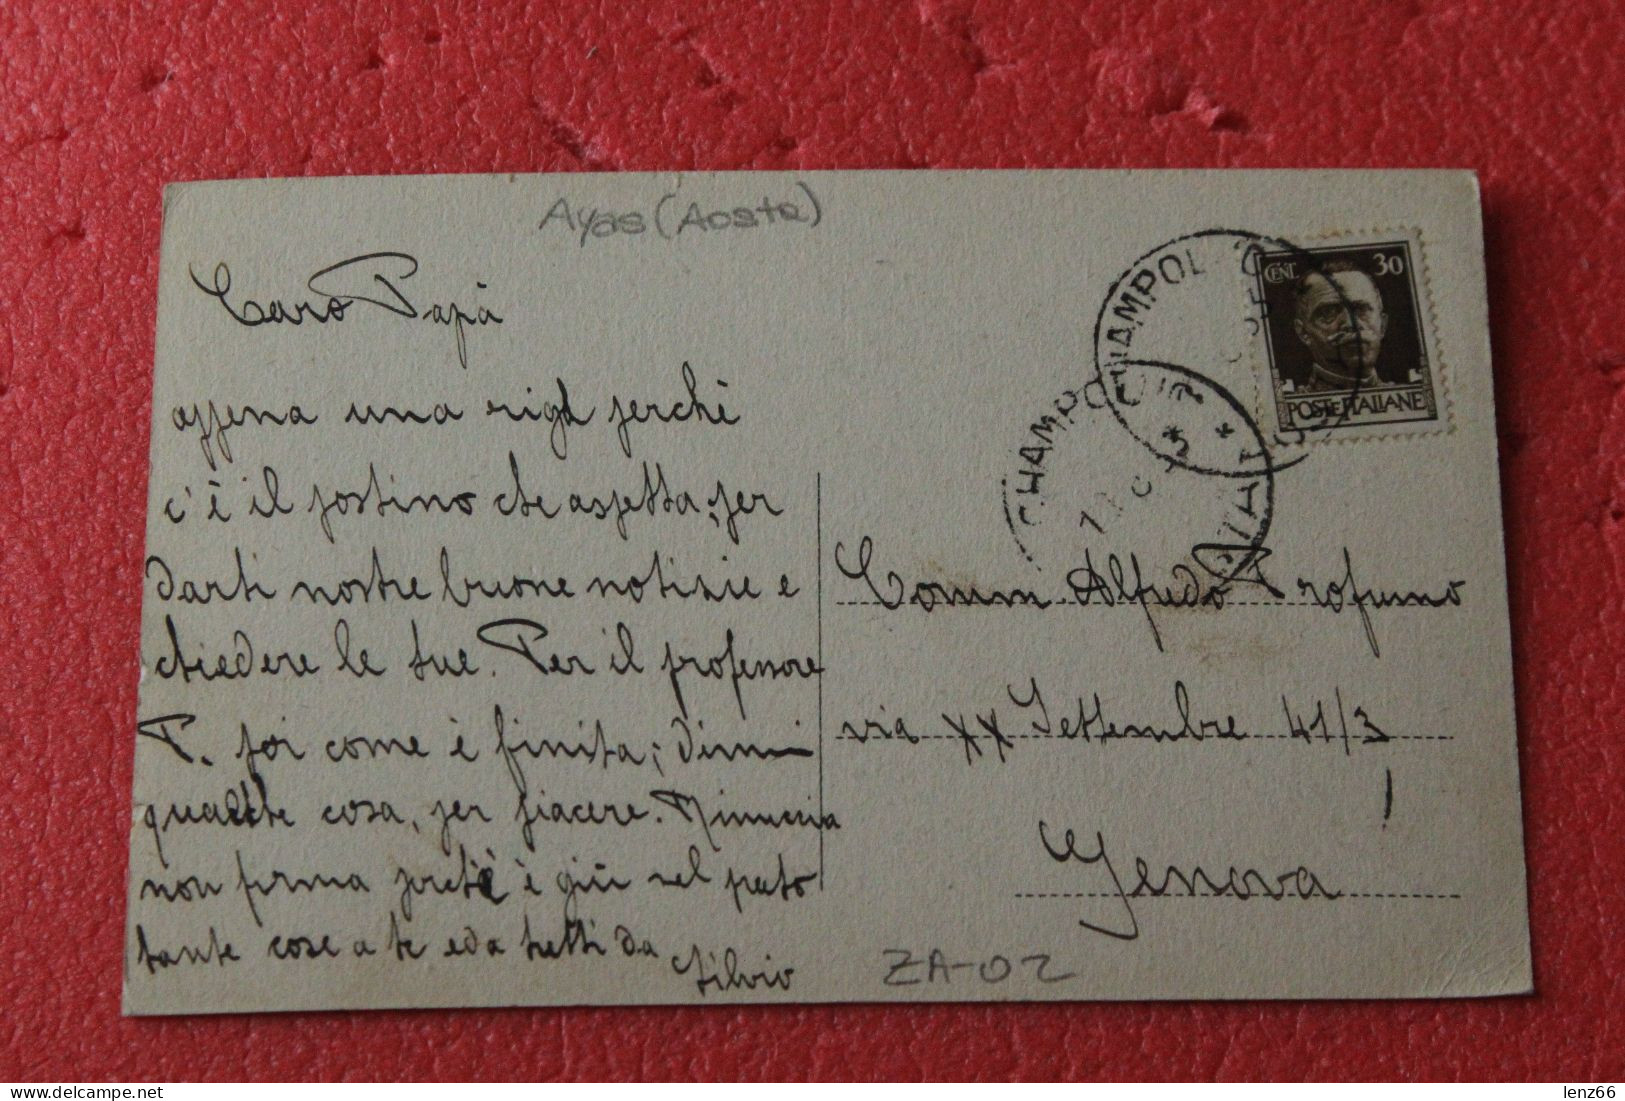 Ayas (Aosta)
Caro Papà
appena una riga perchè
c'è il postino che aspetta per
darti nostre buone notizie e
chiedere le tue. Per il professore
P. poi come è finita; dimmi
qualche cosa, per piacere. Minuccia
non firma perchè è giù nel prato
tante cose a te e da tutti da
Silvio
CENT. 30
POSTE ITALIANE
CHAMPOL
CHAMPO
Comm Alfredo Profumo
via XX Settembre 41/3
Genova
ZA-02
lenz66